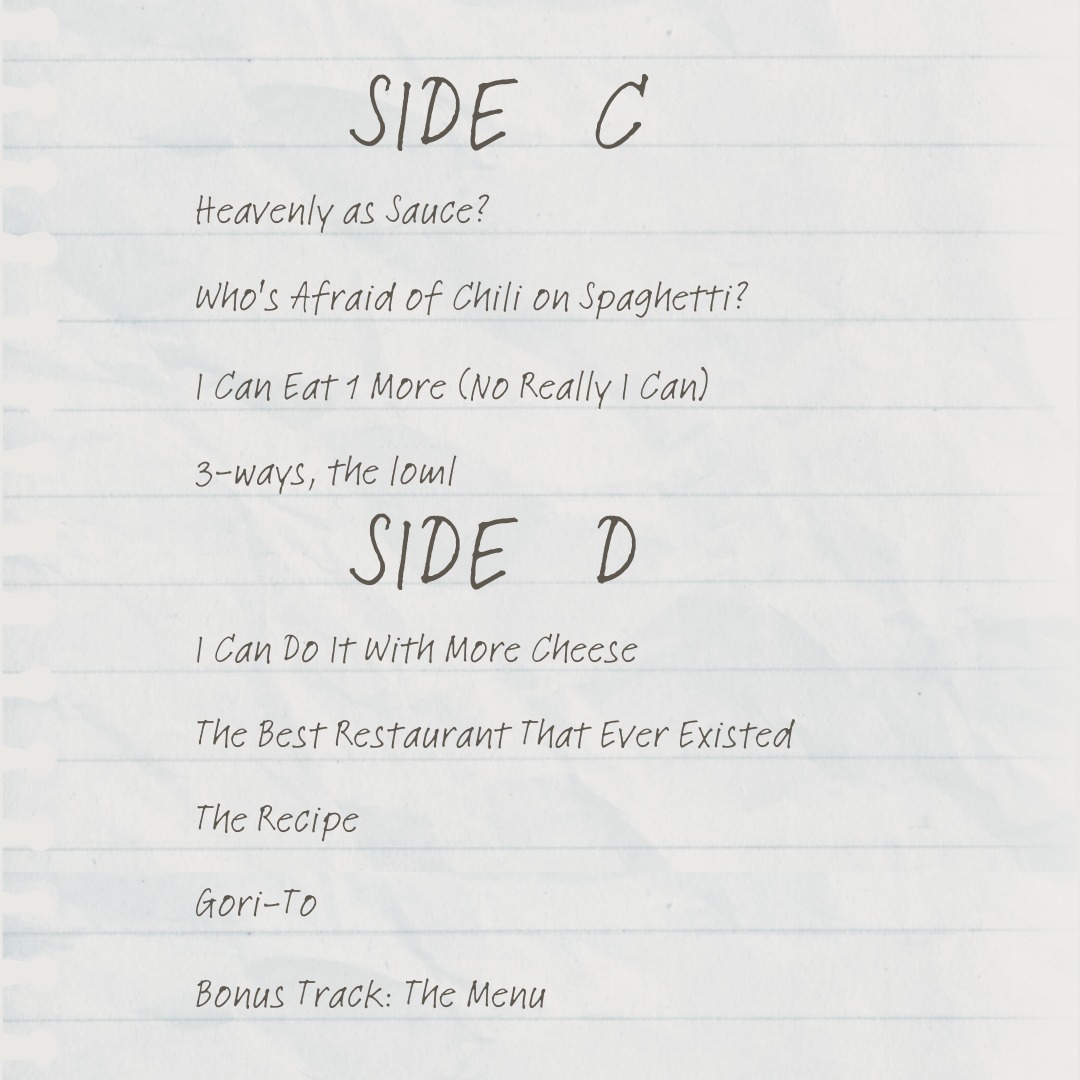 SIDE C
Heavenly as Sauce?
Who's Afraid of Chili on Spaghetti?
I Can Eat 1 More (No Really I Can)
3-ways, the loml
SIDE D
I Can Do It With More Cheese
The Best Restaurant That Ever Existed
The Recipe
Gori-To
Bonus Track: The Menu